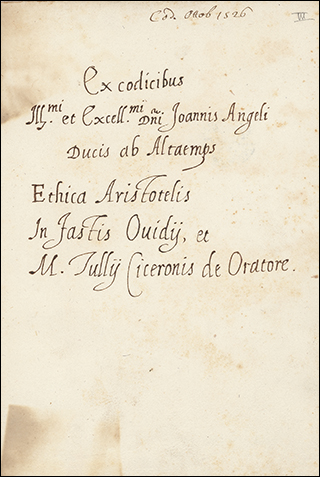 Cod. Ottob 1526
IV
Ex codicibus
Ill.mi et Excell.mi Dñi Joannis Angeli
Ducis ab Altaemps
Ethica Aristotelis
In Fastis Ouidij, et
M. Tullij Ciceronis de Oratore.